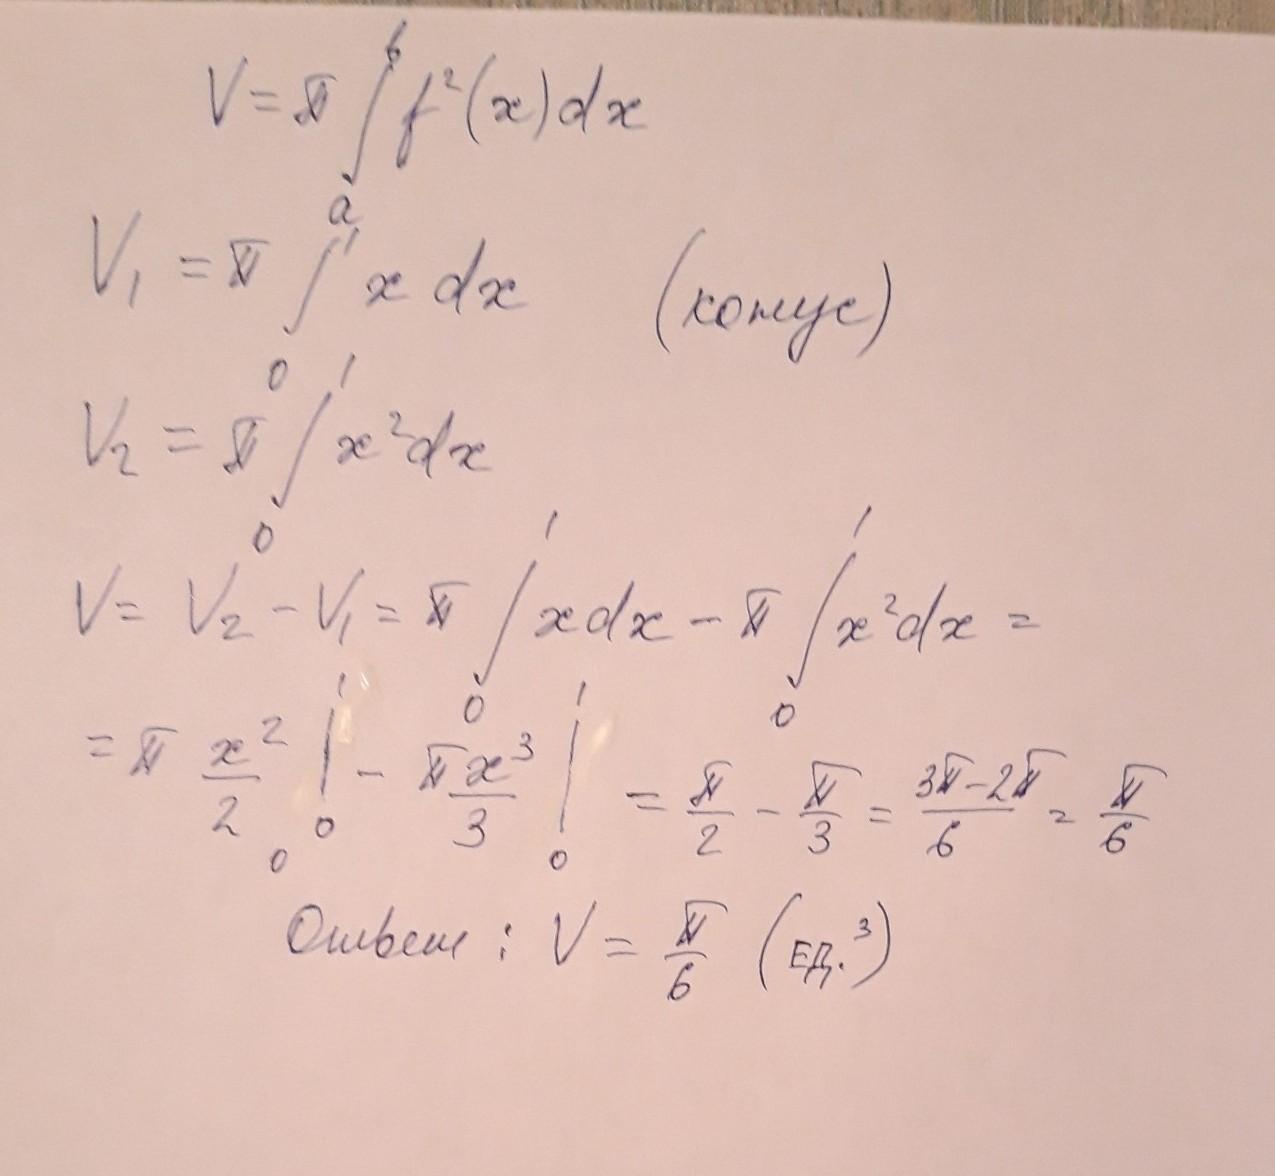 V = π ∫ₐᵇ f²(x)dx
V₁ = π ∫₀¹ x dx (конус)
V₂ = π ∫₀¹ x²dx
V = V₂ - V₁ = π ∫₀¹ xdx - π ∫₀¹ x²dx =
= π x²/2 |₀¹ ₀ - πx³/3 |₀¹ = π/2 - π/3 = (3π-2π)/6 = π/6
Ответ: V = π/6 (ЕД.³)